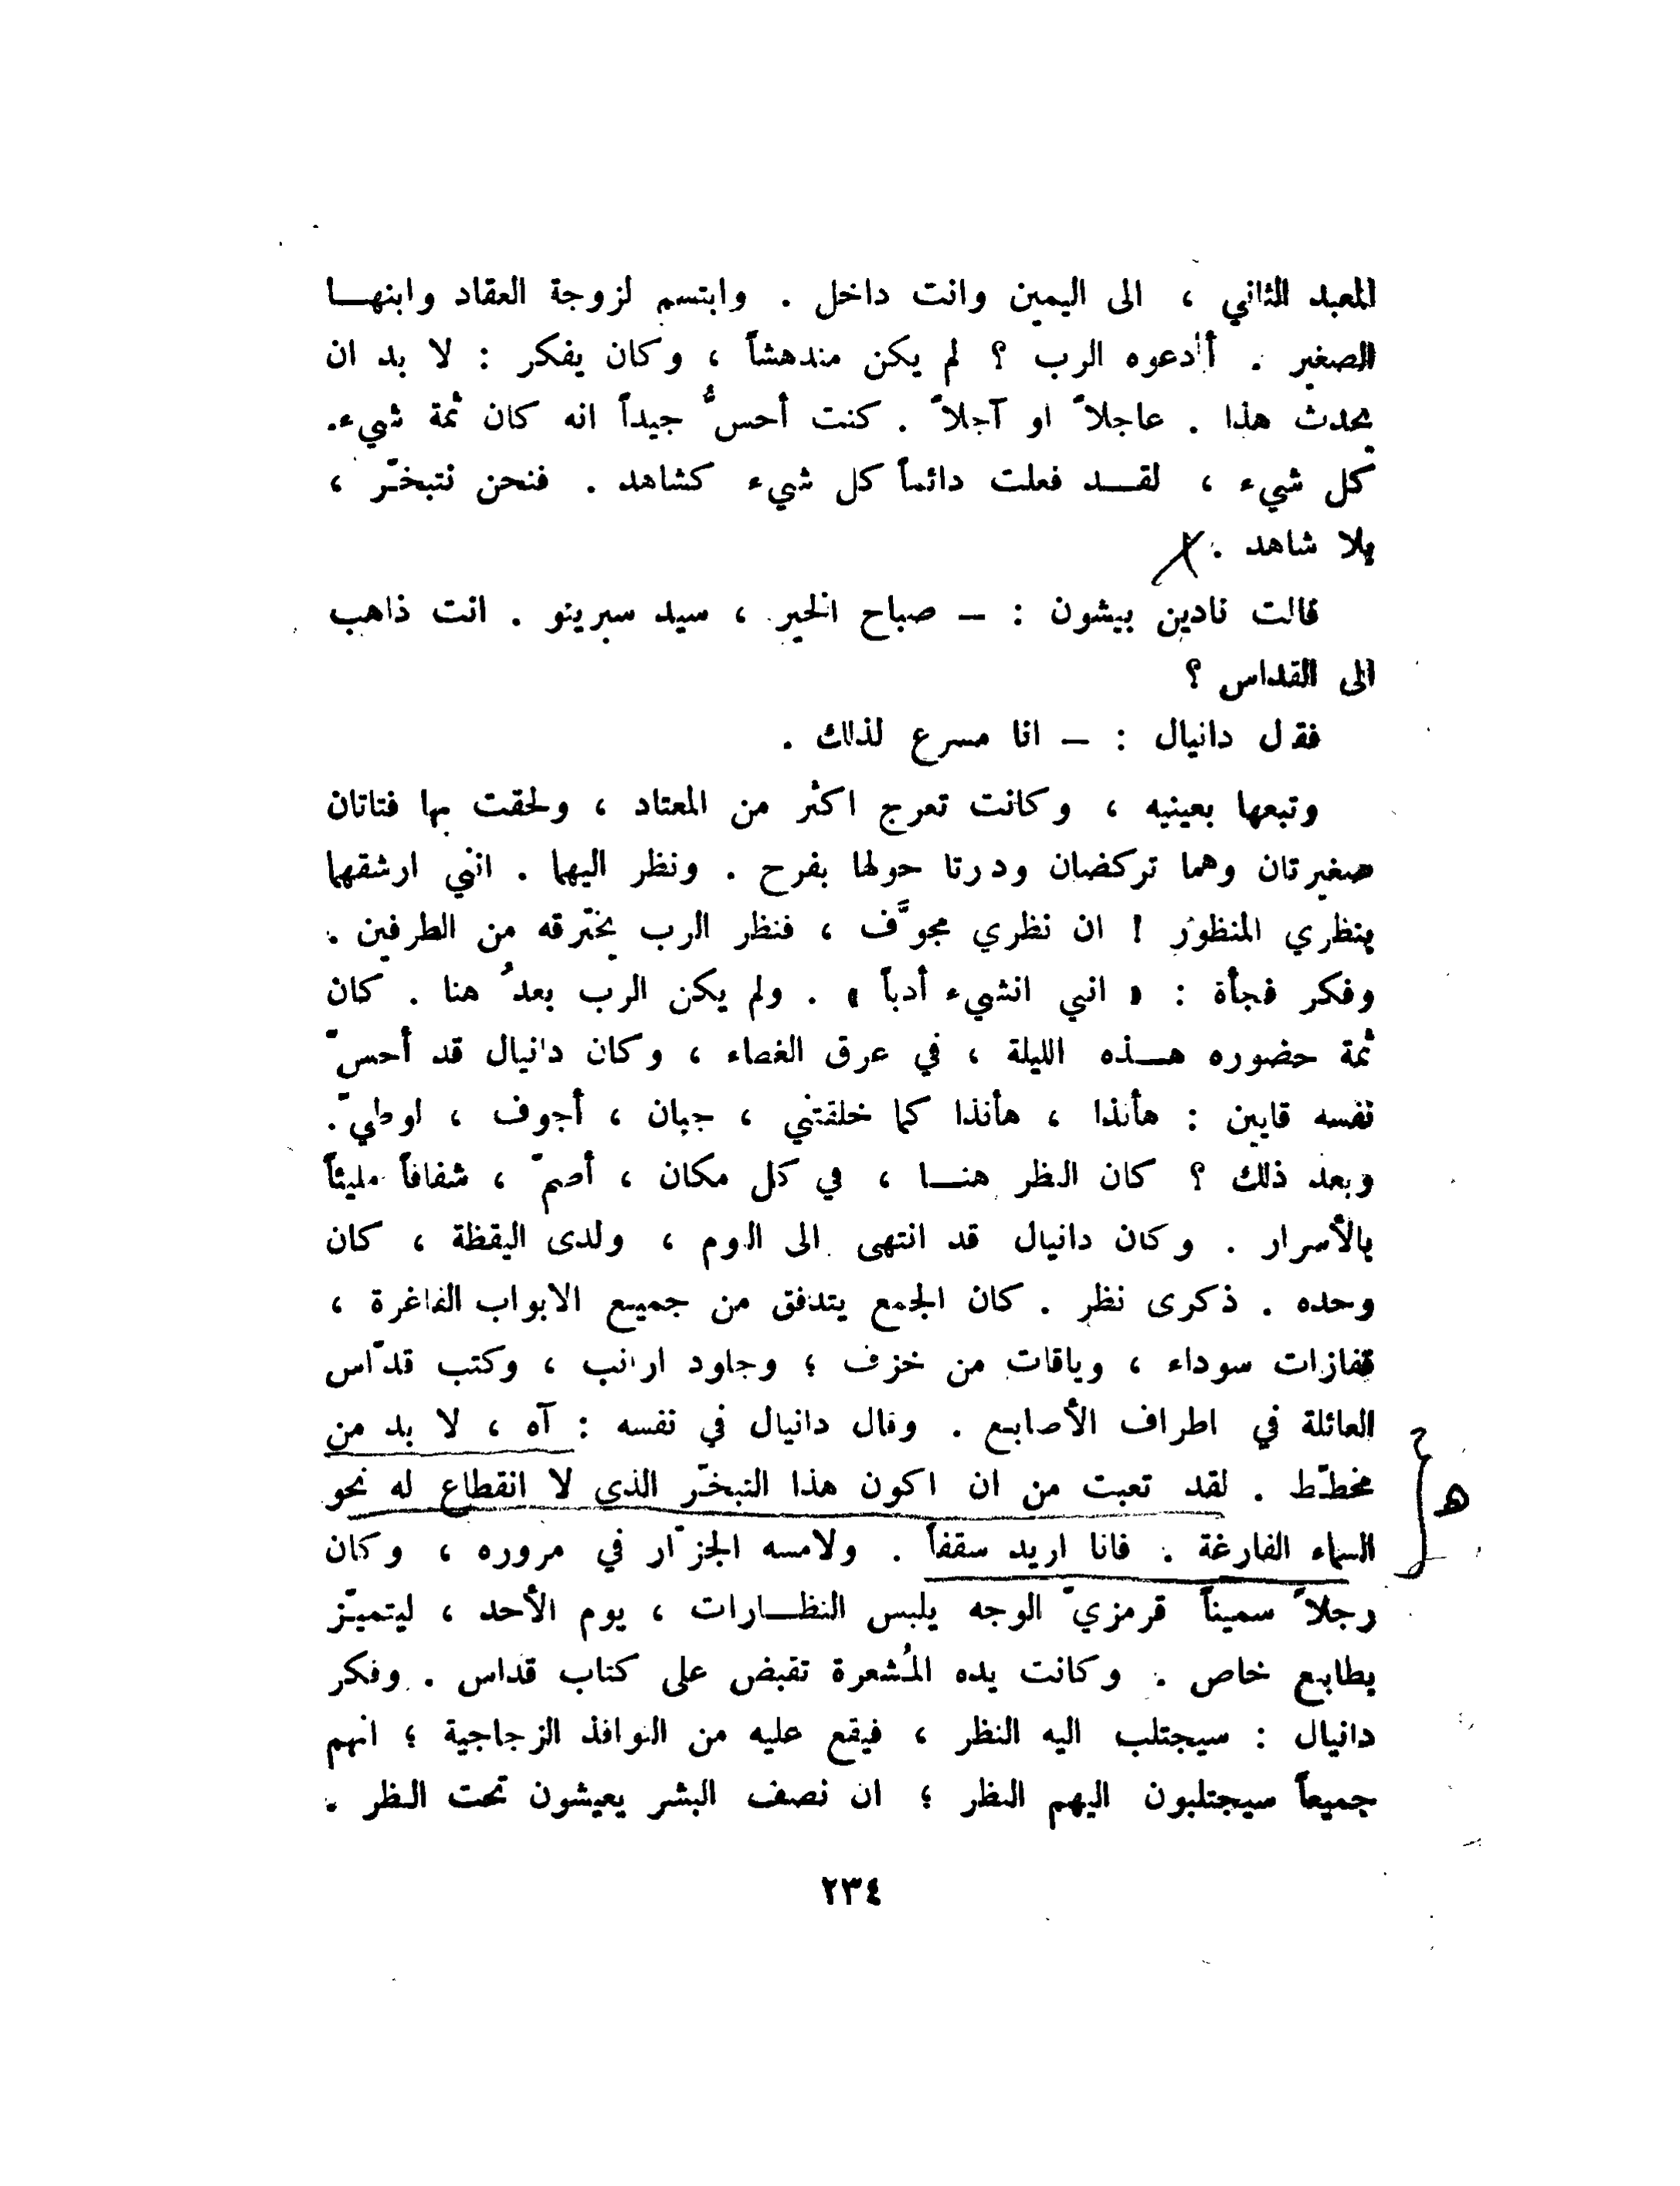 المعبد الثاني ، الى اليمين وانت داخل . وابتسم لزوجة العقاد وابنهــا
الصغير . أأدعوه الرب ؟ لم يكن مندهشاً ، وكان يفكر : لا بد ان
يحدث هذا . عاجلاً او آجلاً . كنت أحسُّ جيداً انه كان ثمة شيء.
كل شيء ، لقــد فعلت دائماً كل شيء كشاهد . فنحن نتبخّر ،
بلا شاهد .
قالت نادين بيشون : – صباح الخير ، سيد سيرينو . انت ذاهب
الى القداس ؟
فقال دانيال : – انا مسرع لذلك .
وتبعها بعينيه ، وكانت تعرج اكثر من المعتاد ، ولحقت بها فتاتان
صغيرتان وهما تركضان ودرتا حولها بفرح . ونظر اليهما . انني ارشقهما
بنظري المنظور ! ان نظري مجوَّف ، فنظر الرب يخترقه من الطرفين .
وفكر فجأة : « انني انشيء أدباً » . ولم يكن الرب بعدُ هنا . كان
ثمة حضوره هــذه الليلة ، في عرق الغطاء ، وكان دانيال قد أحسّ
نفسه قايين : هأنذا ، هأنذا كما خلقتني ، جبان ، أجوف ، لوطيّ.
وبعد ذلك ؟ كان النظر هنــا ، في كل مكان ، أصمّ ، شفافاً مليئاً
بالأسرار . وكان دانيال قد انتهى الى النوم ، ولدى اليقظة ، كان
وحده . ذكرى نظر . كان الجمع يتدفق من جميع الابواب الفاغرة ،
قفازات سوداء ، وياقات من خزف ؛ وجلود ارانب ، وكتب قدّاس
العائلة في اطراف الأصابع . وقال دانيال في نفسه : آه ، لا بد من
مخطّط . لقد تعبت من ان اكون هذا التبخّر الذي لا انقطاع له نحو
السماء الفارغة . فانا اريد سقفاً . ولامسه الجزّار في مروره ، وكان
رجلاً سميناً قرمزيّ الوجه يلبس النظــارات ، يوم الأحد ، ليتميّز
بطابع خاص . وكانت يده المُشعرة تقبض على كتاب قداس . وفكر
دانيال : سيجتلب اليه النظر ، فيقع عليه من النوافذ الزجاجية ؛ انهم
جميعاً سيجتلبون اليهم النظر ؛ ان نصف البشر يعيشون تحت النظر .
هـ
٢٣٤